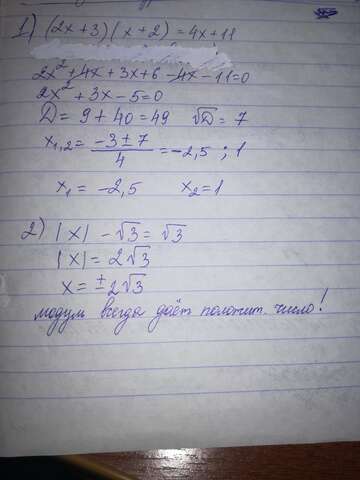 1) (2x+3)(x+2) = 4x+11
2x²+4x+3x+6-4x-11=0
2x²+3x-5=0
D = 9+40=49 √D = 7
x₁,₂ = (-3±7)/4 = -2,5 ; 1
x₁ = -2,5 x₂=1
2) |x| - √3 = √3
|x| = 2√3
x = ±2√3
модуль всегда даёт положит. число!